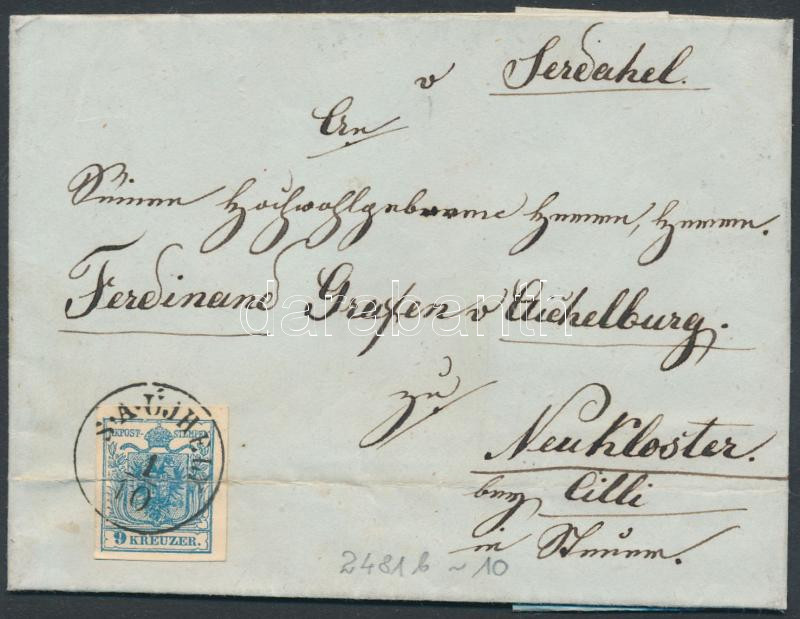 v Serdahel.
An
Seiner Hochwohlgeborene Herrn, Herrn.
Ferdinand Grafen v Aichelburg.
zu
NeuKloster.
bey Cilli
in Steuer.
S:A:UJHELY
1
10
KKPOST-STEMPEL
9 KREUZER.
2481b ~10
darabanth